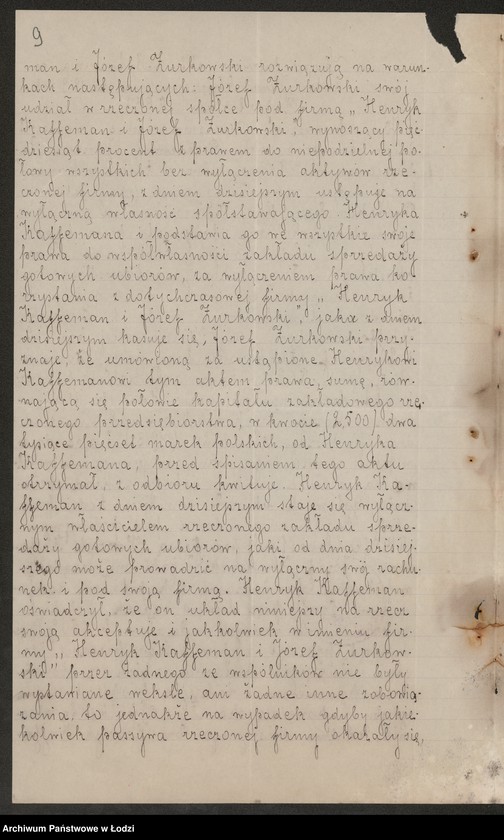 9
man i Józef Żurkowski rozwiązują na warun-
kach następujących: Józef Żurkowski, swój
udział w rzeczonej spółce pod firmą „Henryk
Kaffeman i Józef Żurkowski”, wynoszący pięć-
dziesiąt procent z prawem do niepodzielnej po-
łowy wszystkich bez wyłączenia aktywów rze-
czonej firmy, z dniem dzisiejszym ustępuje na
wyłączną własność spółstawającego Henryka
Kaffemana i podstawia go we wszystkie swoje
prawa do współwłasności zakładu sprzedaży
gotowych ubiorów, za wyłączeniem prawa ko-
rzystania z dotychczasowej firmy „Henryk
Kaffeman i Józef Żurkowski”, jaka z dniem
dzisiejszym kasuje się, Józef Żurkowski przy-
znaje, że umówioną za ustąpione Henrykowi
Kaffemanowi tym aktem prawa, sumę, rów-
nającą się połowie kapitału zakładowego rze-
czonego przedsiębiorstwa, w kwocie (2,500) dwa
tysiące pięćset marek polskich, od Henryka
Kaffemana, przed spisaniem tego aktu
otrzymał, z odbioru kwituje. Henryk Ka-
ffeman z dniem dzisiejszym staje się wyłącz-
nym właścicielem rzeczonego zakładu sprze-
daży gotowych ubiorów, jaki od dnia dzisiej-
szego może prowadzić na wyłączny swój rachu-
nek i pod swoją firmą. Henryk Kaffeman
oświadczył, że on układ niniejszy na rzecz
swoją akceptuje i jakkolwiek w imieniu fir-
my „Henryk Kaffeman i Józef Żurkow-
ski” przez żadnego ze wspólników nie były
wystawiane weksle, ani żadne inne zobowią-
zania, to jednakże na wypadek gdyby jakie-
kolwiek passywa rzeczonej firmy okazały się,
Archiwum Państwowe w Łodzi